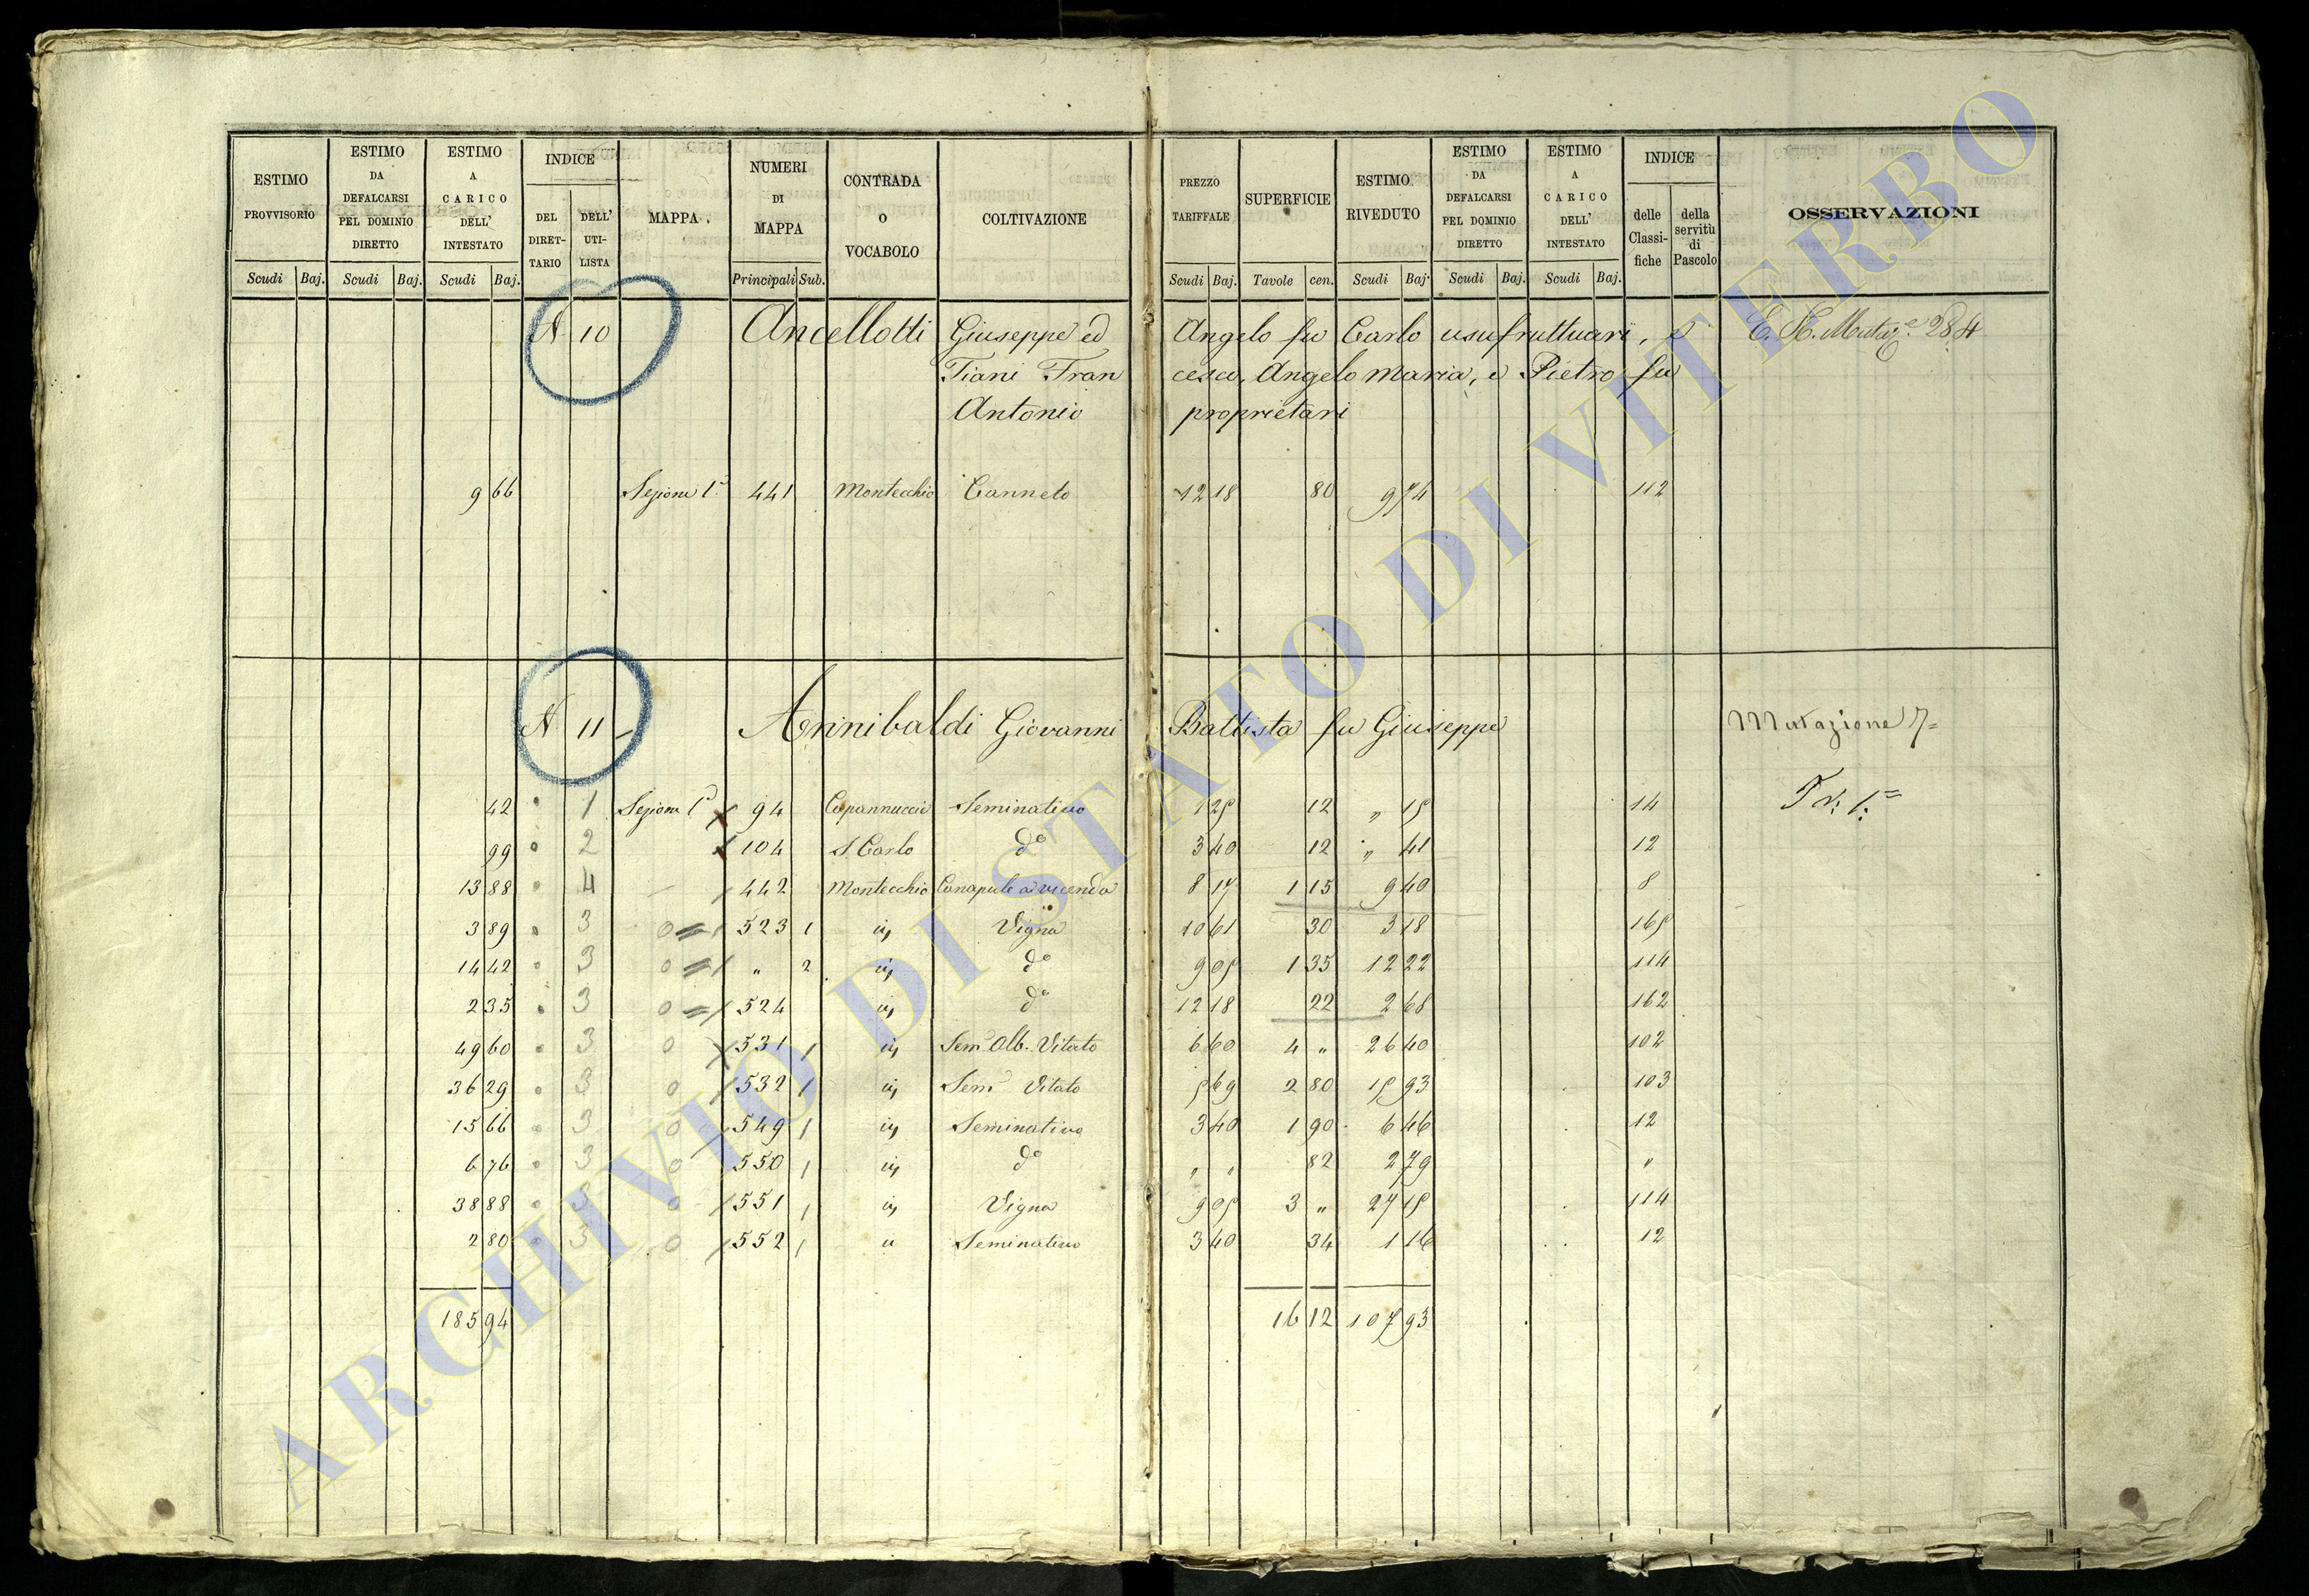 ESTIMO PROVVISORIO | ESTIMO DA DEFALCARSI PEL DOMINIO DIRETTO | ESTIMO A CARICO DELL' INTESTATO | INDICE DEL DIRETTARIO | DELL' UTILISTA | MAPPA. | NUMERI DI MAPPA | CONTRADA O VOCABOLO | COLTIVAZIONE | PREZZO TARIFFALE | SUPERFICIE | ESTIMO RIVEDUTO | ESTIMO DA DEFALCARSI PEL DOMINIO DIRETTO | ESTIMO A CARICO DELL' INTESTATO | INDICE delle Classifiche | della servitù di Pascolo | OSSERVAZIONI
Scudi Baj. Scudi Baj. Scudi Baj. Principali Sub. Scudi Baj. Tavole cen. Scudi Baj. Scudi Baj. Scudi Baj.
N 10 Ancellotti Giuseppe ed Angelo fu Carlo usufruttuari, e 284
Tiani Francesco, Angelo Maria, e Pietro fu
Antonio proprietari
9 66 Sezione 1a 441 Montecchio Canneto 12 18 80 9 74 112
N 11 Annibaldi Giovanni Battista fu Giuseppe Mutazione 7=
42 1 Sezione 1a 94 Capannuccie Seminativo 1 25 12 " 15 14
99 2 104 S. Carlo do 3 40 12 " 41 12
13 88 4 442 Montecchio Canapule a vicenda 8 17 1 15 9 40 8
3 89 3 0 523 1 ivi Vigna 10 61 30 3 18 165
14 42 3 0 " 2 ivi do 9 05 1 35 12 22 114
2 35 3 0 524 ivi do 12 18 22 2 68 162
49 60 3 0 531 1 ivi Sem. Alb. Vitato 6 60 4 " 26 40 102
36 29 3 0 532 1 ivi Sem. Vitato 5 69 2 80 15 93 103
15 66 3 0 549 1 ivi Seminativo 3 40 1 90 6 46 12
6 76 3 0 550 1 ivi do " " 82 2 79 "
38 88 3 0 551 1 ivi Vigna 9 05 3 " 27 15 114
2 80 3 0 552 1 " Seminativo 3 40 34 1 16 12
185 94 16 12 107 93
ARCHIVIO DI STATO DI VITERBO